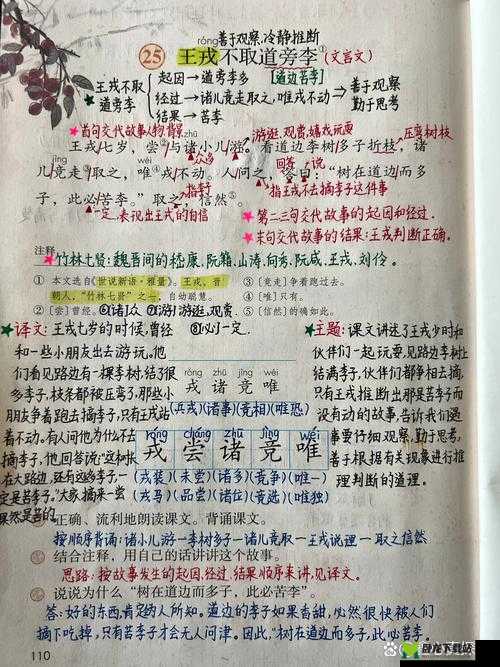 善于观察、冷静推断
róng
25 王戎不取道旁李① (文言文)
王戎不取道旁李
起因→道旁李多 [道边苦李]
经过→诸儿竞走取之,唯戎不动→善于观察 勤于思考
结果→苦李
首句交代故事人物、背景
游逛、观赏、嬉戏玩耍
压弯树枝
zhū
王戎七岁,尝②与诸小儿游。看道边李树多子折枝,诸
众多
回答 说
jìng wéi
儿竞走③取之,唯④戎不动。人问之,答曰:“树在道边而多
指李子
指王戎不去摘李子这件事
子,此必苦李。”取之,信然⑤。
一定,表现出王戎的自信
第二三句交代故事的起因和经过.
末句交代故事的结果:王戎判断正确.
注释
竹林七贤:魏晋间的嵇康、阮籍、山涛、向秀、阮咸、王戎、刘伶.
① 本文选自《世说新语·雅量》。王戎,晋朝人,“竹林七贤”之一,自幼聪慧。
② [尝]曾经。
③ [竞走]争着跑过去。
④ [唯]只有。
⑤ [信然]的确如此。
⑥[诸]众 ⑦[游]游逛,观赏.
⑧[必]一定.
译文:王戎七岁的时候,曾经
和一些小朋友出去游玩。他
们看见路边有一棵李树,结了很
多李子,枝条都被压弯了,那些小
朋友争着跑去摘李子,只有王戎站
着不动。有人问他为什么不去
摘李子,他回答说:“这种树
在大路边,还有这多李子,一
定是苦李子。”大家摘来一尝
果然是苦的。
主题:课文讲述了王戎少时和
伙伴们一起玩耍,见路边李树上
结满李子,伙伴们都争相去摘,
只有王戎推断出那是苦李而
没有动的故事,告诉我们遇
事要仔细观察,勤于思考,
善于根据有关现象进行推
理判断的道理.
róng zhū jìng wéi
戎 诸 竞 唯
(兵戎)(诸事)(竞相)(唯恐)
róng cháng zhū jìng wéi
戎 尝 诸 竞 唯
(戎装)(未尝)(诸多)(竞争)(唯一)
(戎马)(品尝)(诸位)(竞选)(唯独)
正确、流利地朗读课文。背诵课文。
按顺序背诵:诸小儿游—李树多子—诸儿竞取—王戎说理—取之信然
结合注释,用自己的话讲讲这个故事。
思路:按故事发生的起因、经过、结果顺序来讲,见译文。
说说为什么“树在道边而多子,此必苦李”。
答:好的东西,肯定为人所知。道边的李子如果香甜,必然很快被人们
摘下吃掉,只有苦李子才会无人问津。因此,“树在道边而多子,此必苦李。
110
卧龙下载站